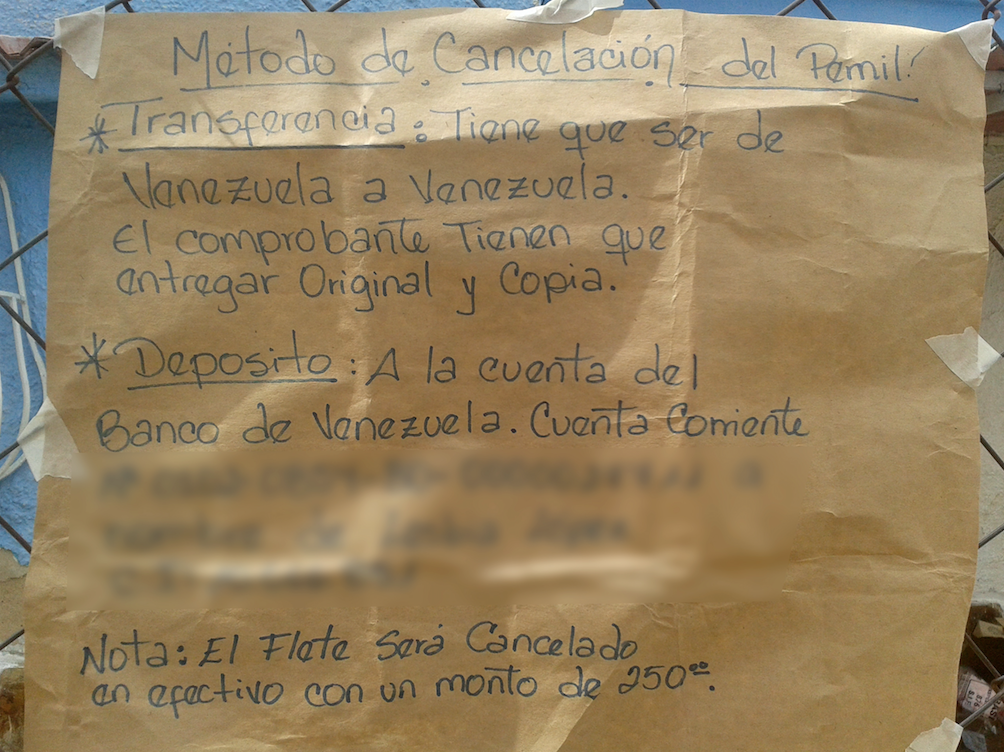 Método de Cancelación del Pernil!
* Transferencia: Tiene que ser de
Venezuela a Venezuela.
El comprobante Tienen que
entregar Original y Copia.
* Deposito: A la cuenta del
Banco de Venezuela. Cuenta Corriente
Nota: El Flete Será Cancelado
en efectivo con un monto de 250⁰⁰.